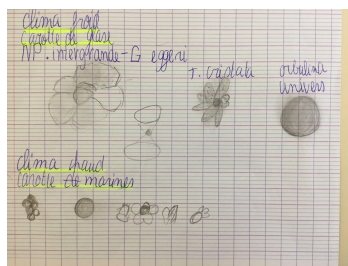 clima froid
carotte de glase
NP. intergrande - G eggeri
T. cristata
orbulina
univers
clima chaud
carotte de marines